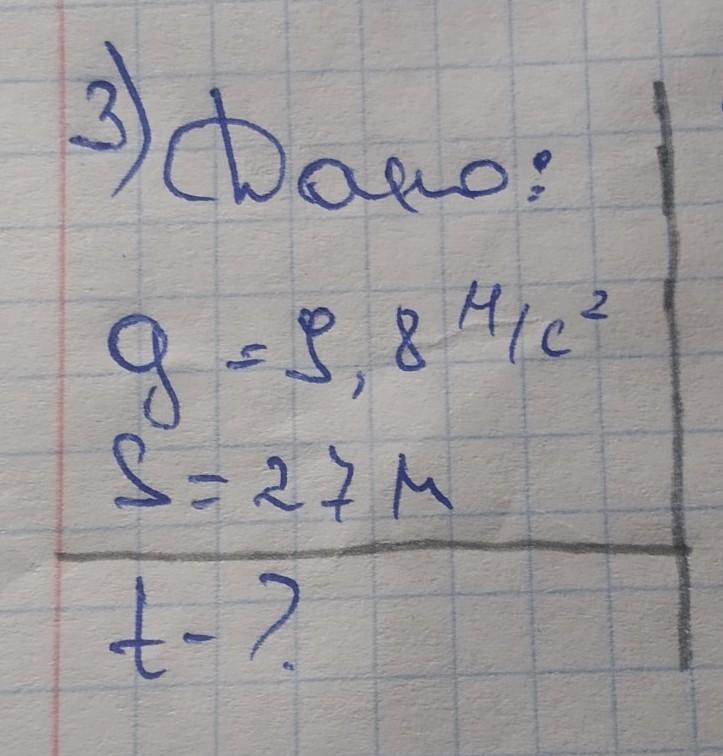 3) Дано:
g = 9,8 м/с²
S = 27 м
t - ?